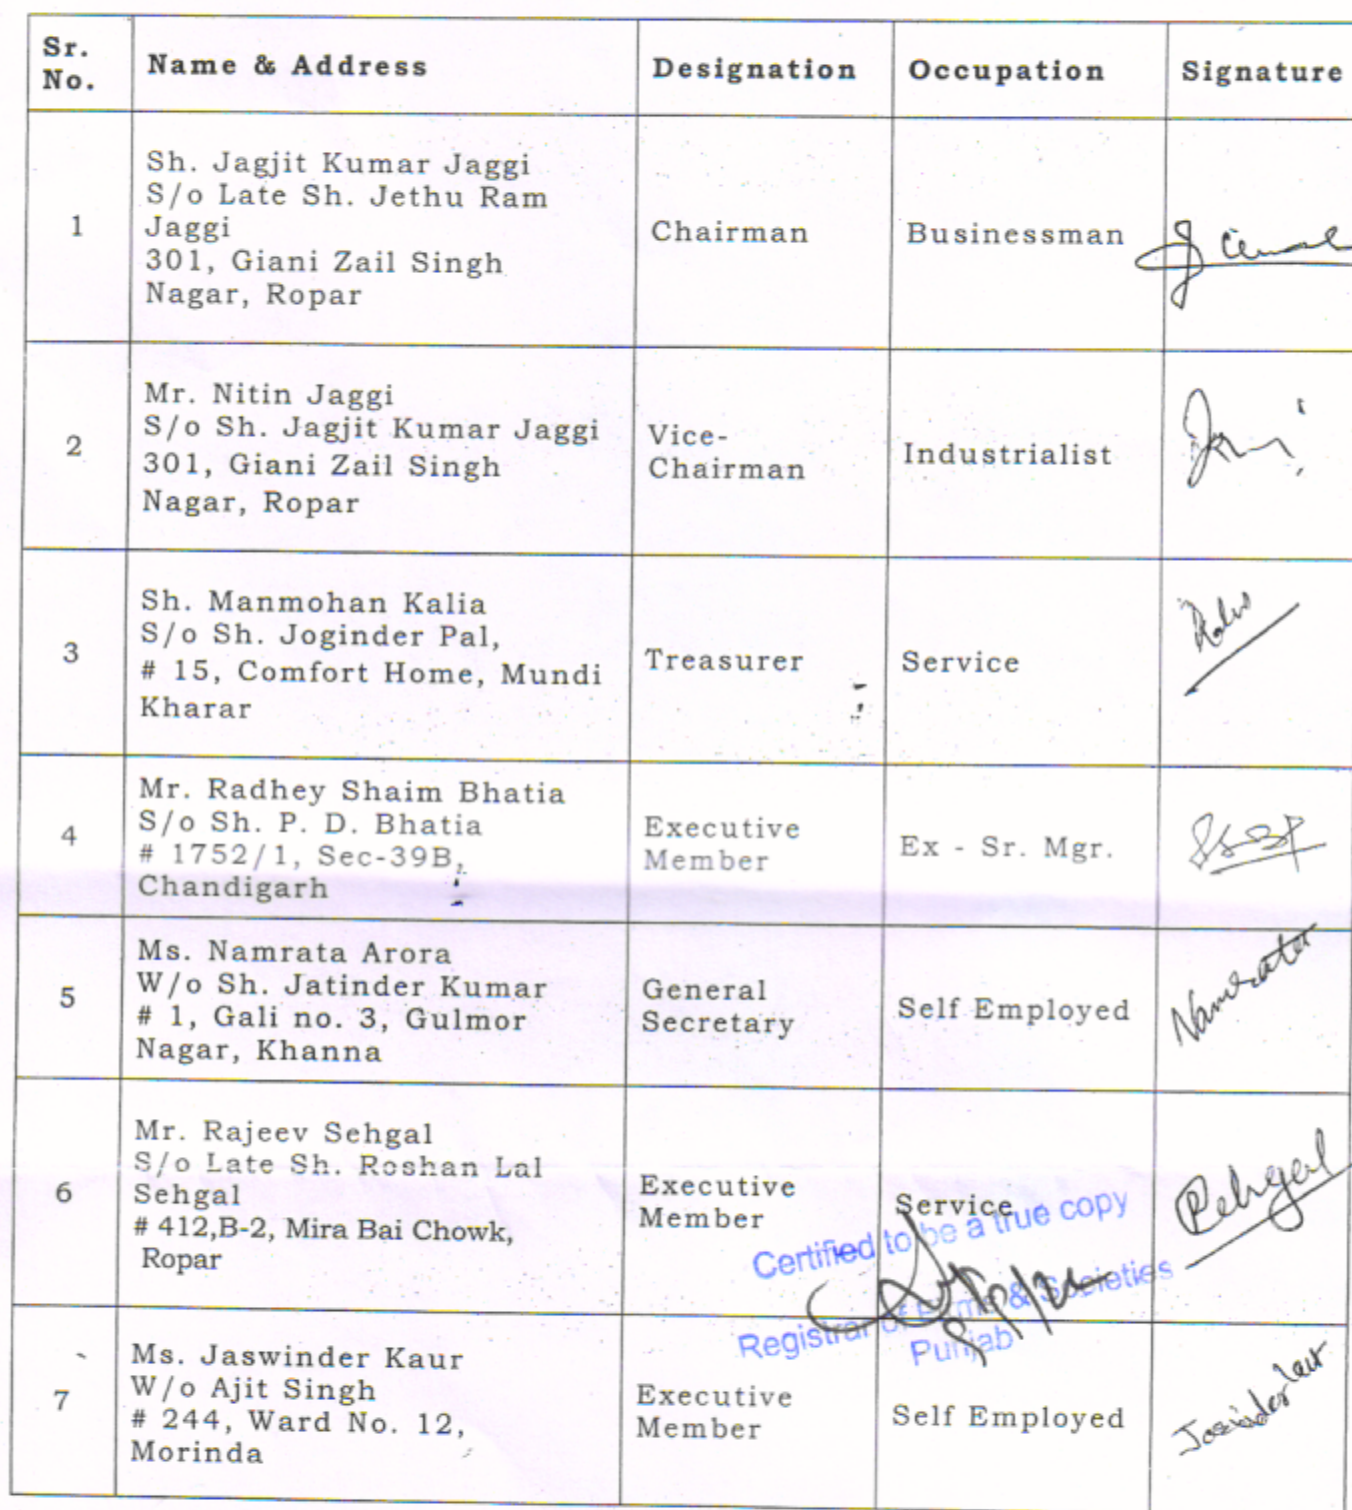 Sr. No. Name & Address Designation Occupation Signature
1
Sh. Jagjit Kumar Jaggi
S/o Late Sh. Jethu Ram
Jaggi
301, Giani Zail Singh
Nagar, Ropar
Chairman
Businessman
2
Mr. Nitin Jaggi
S/o Sh. Jagjit Kumar Jaggi
301, Giani Zail Singh
Nagar, Ropar
Vice-
Chairman
Industrialist
3
Sh. Manmohan Kalia
S/o Sh. Joginder Pal,
# 15, Comfort Home, Mundi
Kharar
Treasurer
Service
4
Mr. Radhey Shaim Bhatia
S/o Sh. P. D. Bhatia
# 1752/1, Sec-39B,
Chandigarh
Executive
Member
Ex - Sr. Mgr.
5
Ms. Namrata Arora
W/o Sh. Jatinder Kumar
# 1, Gali no. 3, Gulmor
Nagar, Khanna
General
Secretary
Self Employed
Namrata
6
Mr. Rajeev Sehgal
S/o Late Sh. Roshan Lal
Sehgal
# 412,B-2, Mira Bai Chowk,
Ropar
Executive
Member
Service
Certified to be a true copy
Registrar of Firms & Societies
Punjab
7
Ms. Jaswinder Kaur
W/o Ajit Singh
# 244, Ward No. 12,
Morinda
Executive
Member
Self Employed